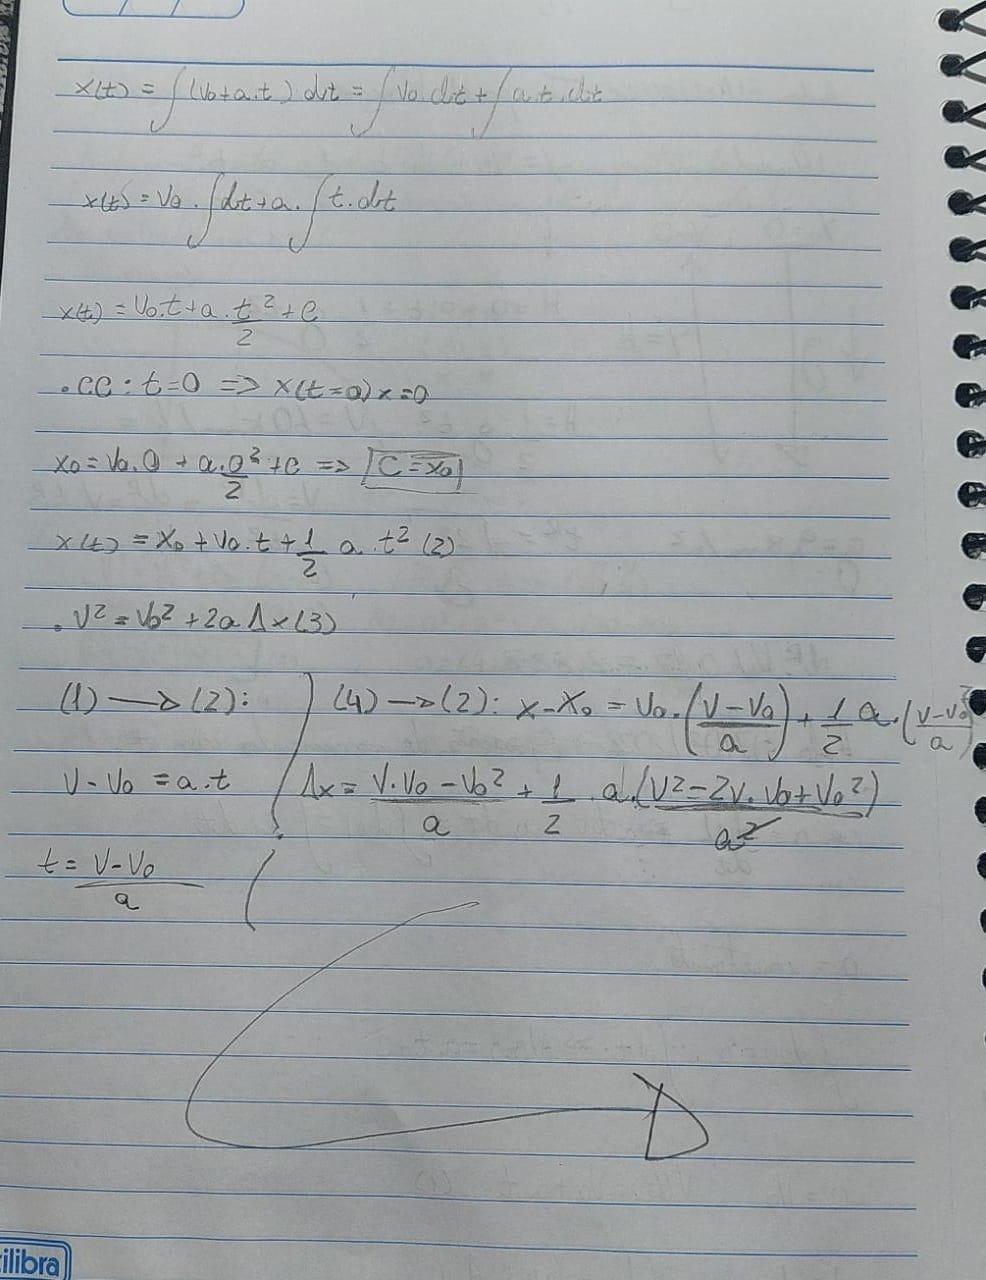 x(t) = ∫(V₀+a.t) dt = ∫V₀.dt + ∫a.t.dt
x(t) = V₀.∫dt + a.∫t.dt
x(t) = V₀.t + a.t²/2 + C
.CC: t=0 => x(t=0) x=0
x₀ = V₀.0 + a.0²/2 + C => C = x₀
x(t) = x₀ + V₀.t + 1/2 a.t² (2)
. V² = V₀² + 2aΔx (3)
(1) —> (2):
V - V₀ = a.t
t = V-V₀/a
(4) —> (2): x-x₀ = V₀.(V-V₀/a) + 1/2 a.(V-V₀/a)²
Δx = V.V₀ - V₀²/a + 1/2 .a.(V²-2V.V₀+V₀²)/a²
ilibra